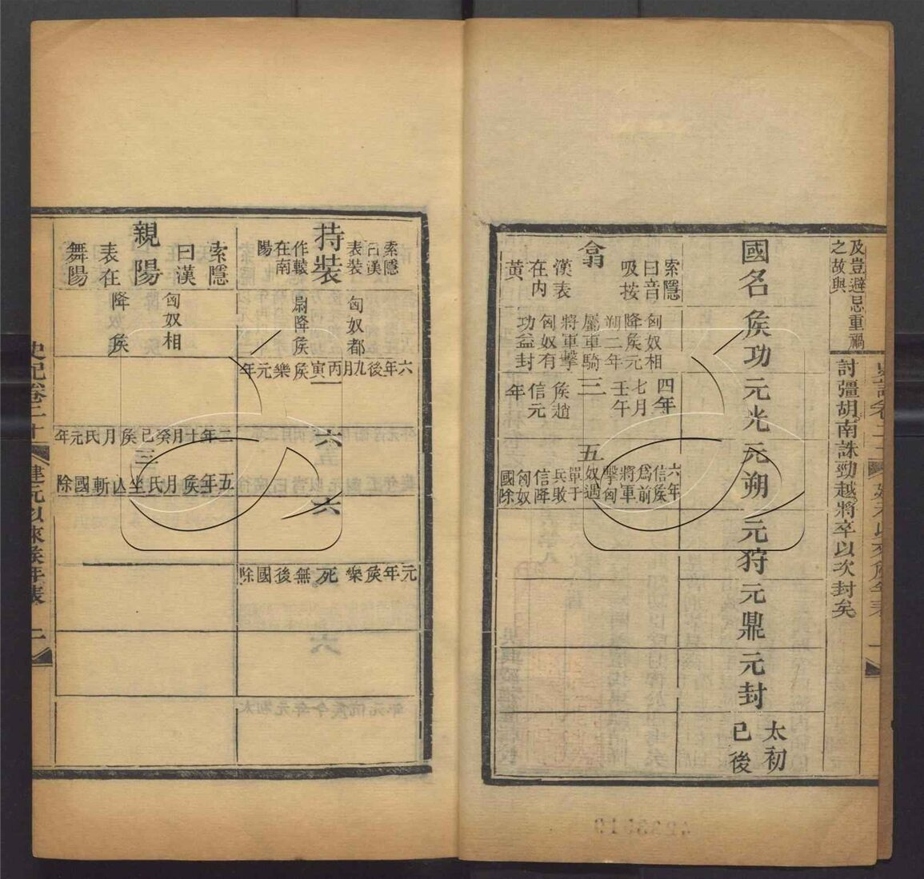 及豈避忌重禍
之故與
討彊胡南誅勁越將卒以次封矣
國名
侯功
元光
元朔
元狩
元鼎
元封
太初
已後
翕
索隱
曰音
吸按
漢表
在内
黃
匈奴相
降侯元
朔二年
屬車騎
將軍擊
匈奴有
功益封
三
四年
七月
壬午
侯趙
信元
年
五
六年
信侯
爲前
將軍
擊匈
奴遇
單于
兵敗
信降
匈奴
國除
持裝
索隱
曰漢
表裝
作轅
在南
陽
匈奴都
尉降侯
一
六年後九月丙寅侯樂元年
六
六
元年侯樂死無後國除
親陽
索隱
曰漢
表在
舞陽
匈奴相
降侯
三
二年十月癸已侯月氏元年
五年侯月氏坐亾斬國除
史記卷二十
建元以來侯年表
二